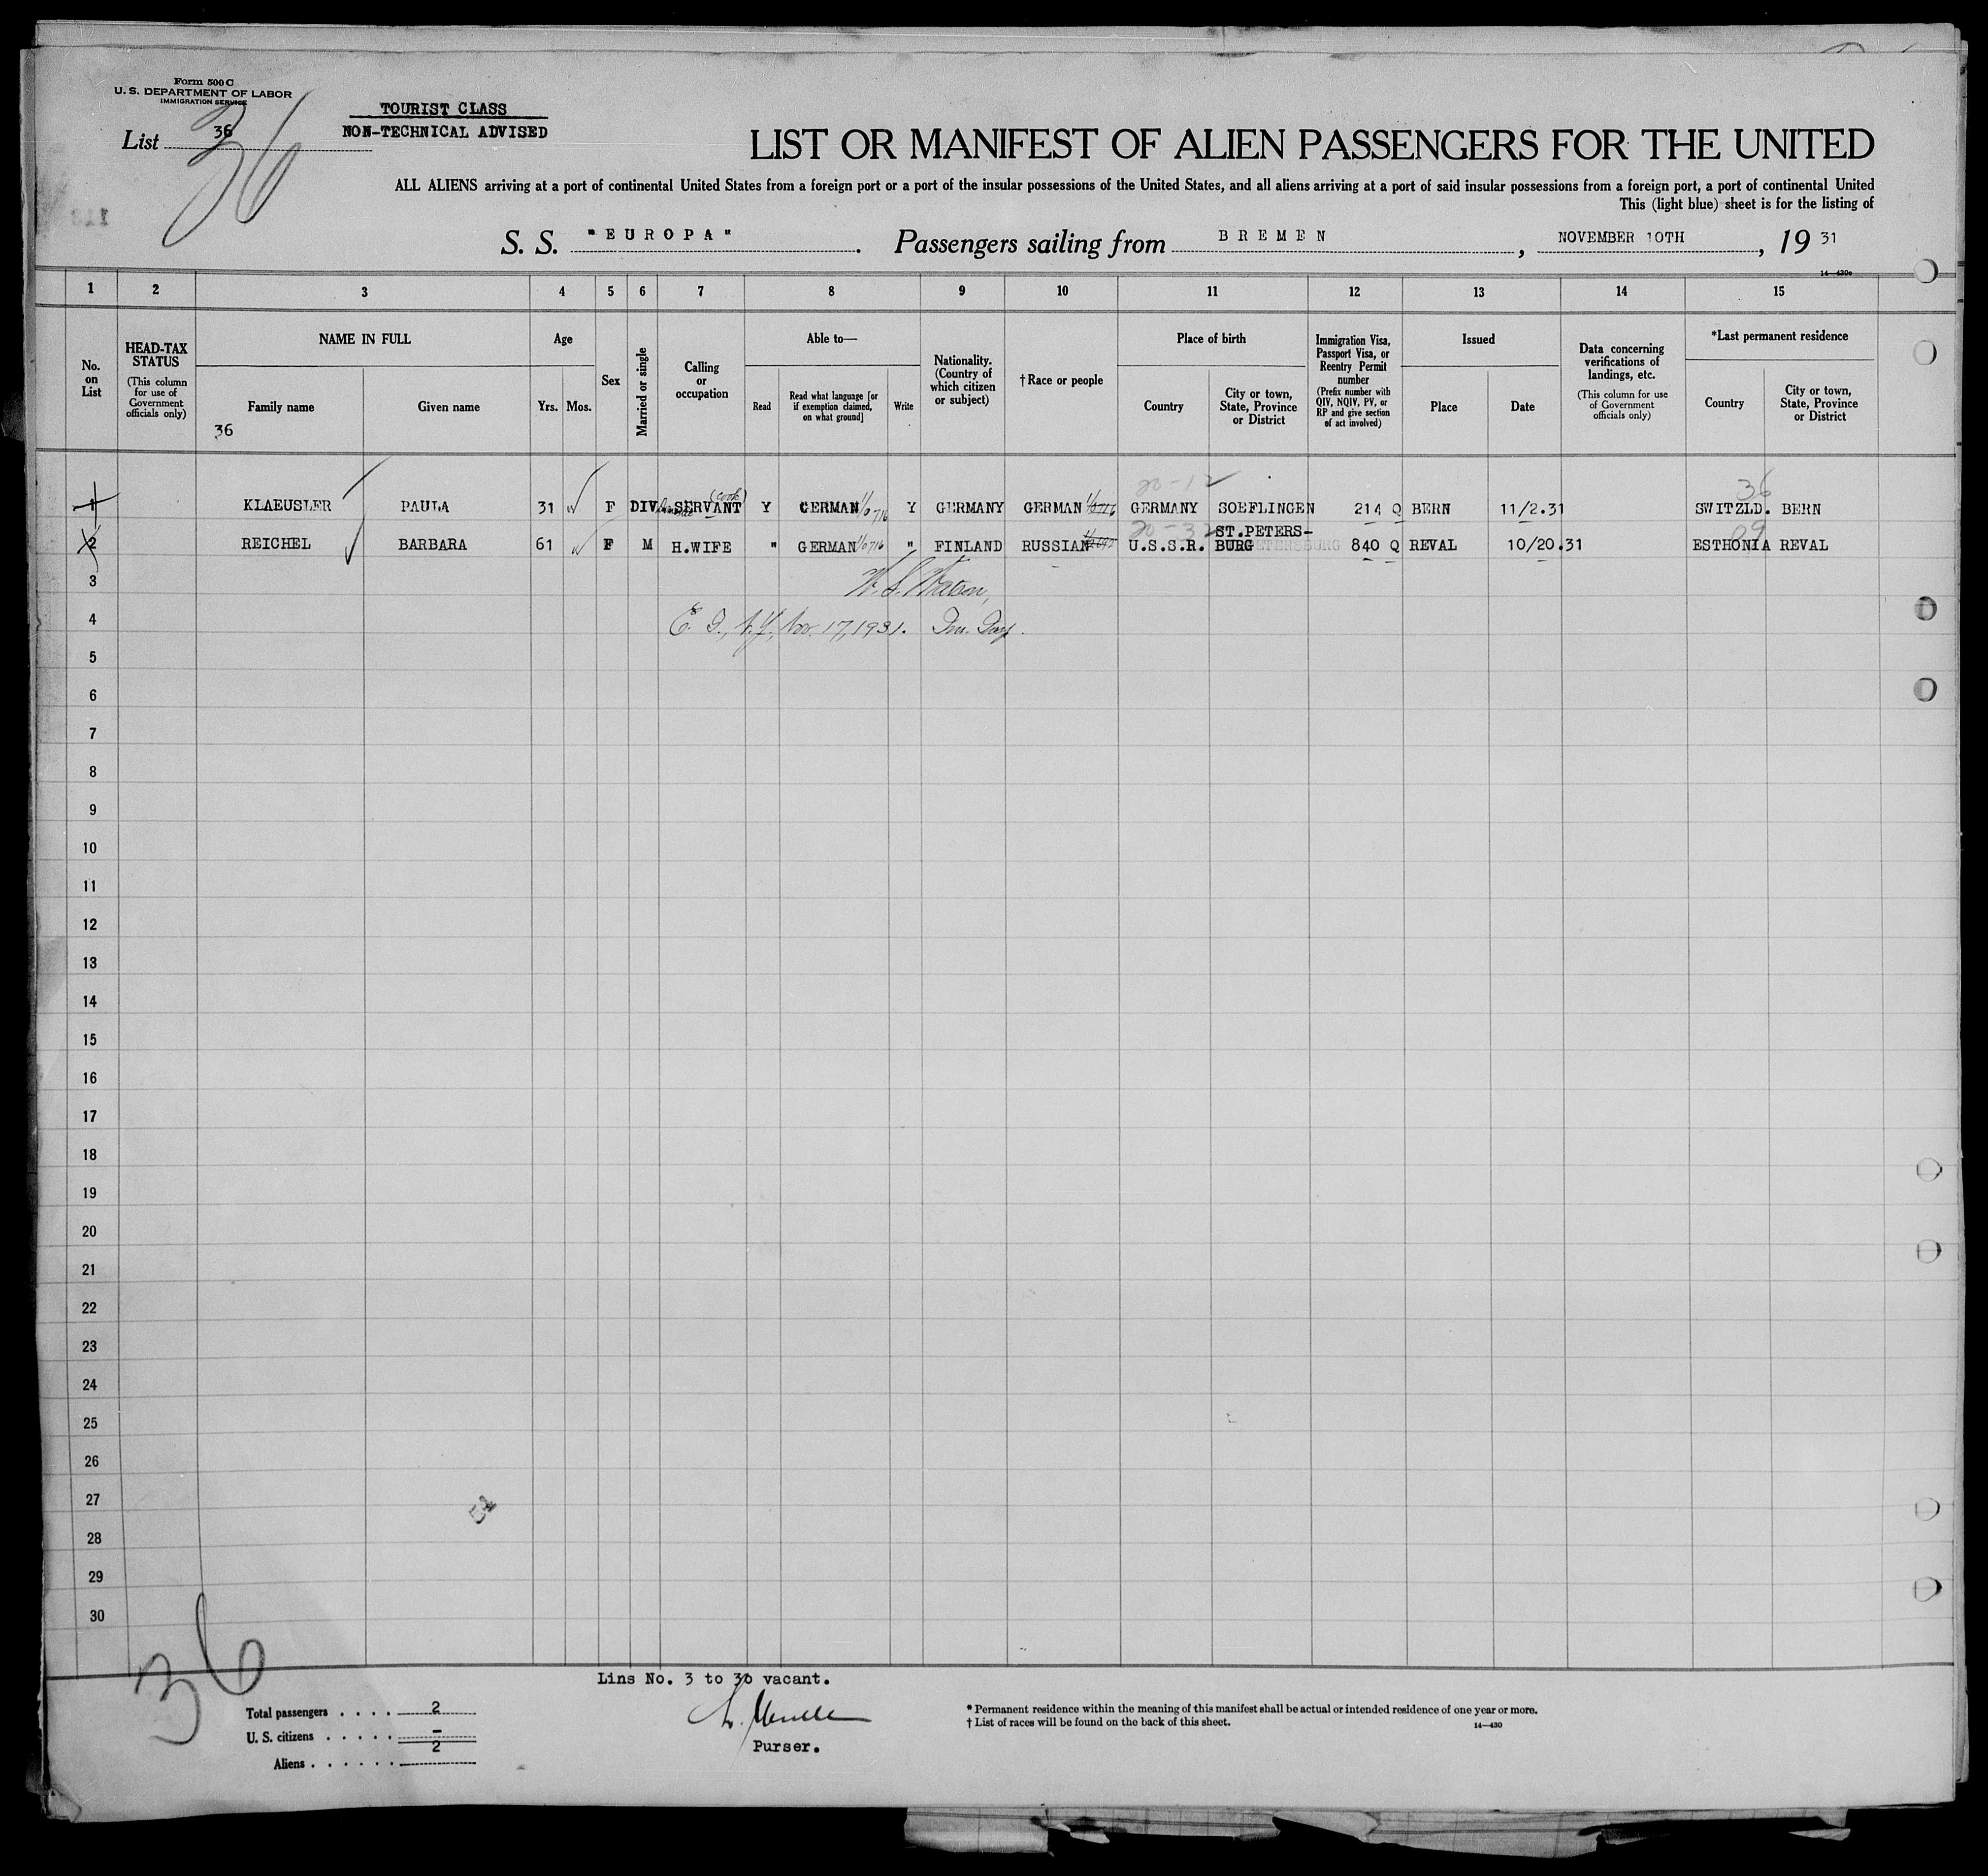 Form 500 C
U. S. DEPARTMENT OF LABOR
IMMIGRATION SERVICE
List 36
36
TOURIST CLASS
NON-TECHNICAL ADVISED
LIST OR MANIFEST OF ALIEN PASSENGERS FOR THE UNITED
ALL ALIENS arriving at a port of continental United States from a foreign port or a port of the insular possessions of the United States, and all aliens arriving at a port of said insular possessions from a foreign port, a port of continental United
This (light blue) sheet is for the listing of
S. S. "EUROPA". Passengers sailing from BREMEN, NOVEMBER 10TH, 19 31
14—430a
1 2 3 4 5 6 7 8 9 10 11 12 13 14 15
No. on List
HEAD-TAX STATUS
(This column for use of Government officials only)
NAME IN FULL
Family name
Given name
36
Age
Yrs. Mos.
Sex
Married or single
Calling or occupation
Able to—
Read
Read what language [or if exemption claimed, on what ground]
Write
Nationality. (Country of which citizen or subject)
†Race or people
Place of birth
Country
City or town, State, Province or District
Immigration Visa, Passport Visa, or Reentry Permit number
(Prefix number with QIV, NQIV, PV, or RP and give section of act involved)
Issued
Place
Date
Data concerning verifications of landings, etc.
(This column for use of Government officials only)
*Last permanent residence
Country
City or town, State, Province or District
20-12 36
(cook)
1 KLAEUSLER PAULA 31 F DIV SERVANT Y GERMAN Y GERMANY GERMAN GERMANY SOEFLINGEN 214 Q BERN 11/2.31 SWITZLD. BERN
20-32 ST.PETERS- 09
2 REICHEL BARBARA 61 F M H.WIFE " GERMAN " FINLAND RUSSIAN U.S.S.R. BURG 840 Q REVAL 10/20.31 ESTHONIA REVAL
3 W. S. Watson,
4 E. I., N.Y., Nov. 17, 1931. Imm. Insp.
5
6
7
8
9
10
11
12
13
14
15
16
17
18
19
20
21
22
23
24
25
26
27
28
29
30
36
Lins No. 3 to 30 vacant.
Purser.
Total passengers . . . . 2
U. S. citizens . . . . . –
Aliens . . . . . . 2
* Permanent residence within the meaning of this manifest shall be actual or intended residence of one year or more.
† List of races will be found on the back of this sheet.
14—430